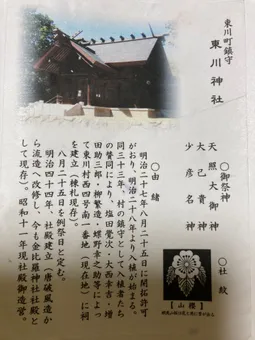 東川町鎮守
東川神社
〇御祭神
天照大御神
大己貴神
少彦名神
〇社紋
【山桜】
〇由緒
明治二十七年八月二十五日に開拓許可
がおり、明治二十八年より入植が始まる。
同三十三年、村の鎮守として入植者たち
の賛同により、塩田覺次・大西幸吉・增
田助三郎・柳繁造・螺野幸之助等によっ
て東川村西四号南一番地（現在地）に祠
を建立（棟札現存）。
八月二十五日を例祭日と定む。
明治四十四年、社殿建立（唐破風造か
ら流造へ改修し、今も金比羅神社社殿と
して現存）。昭和十一年現社殿御造営。